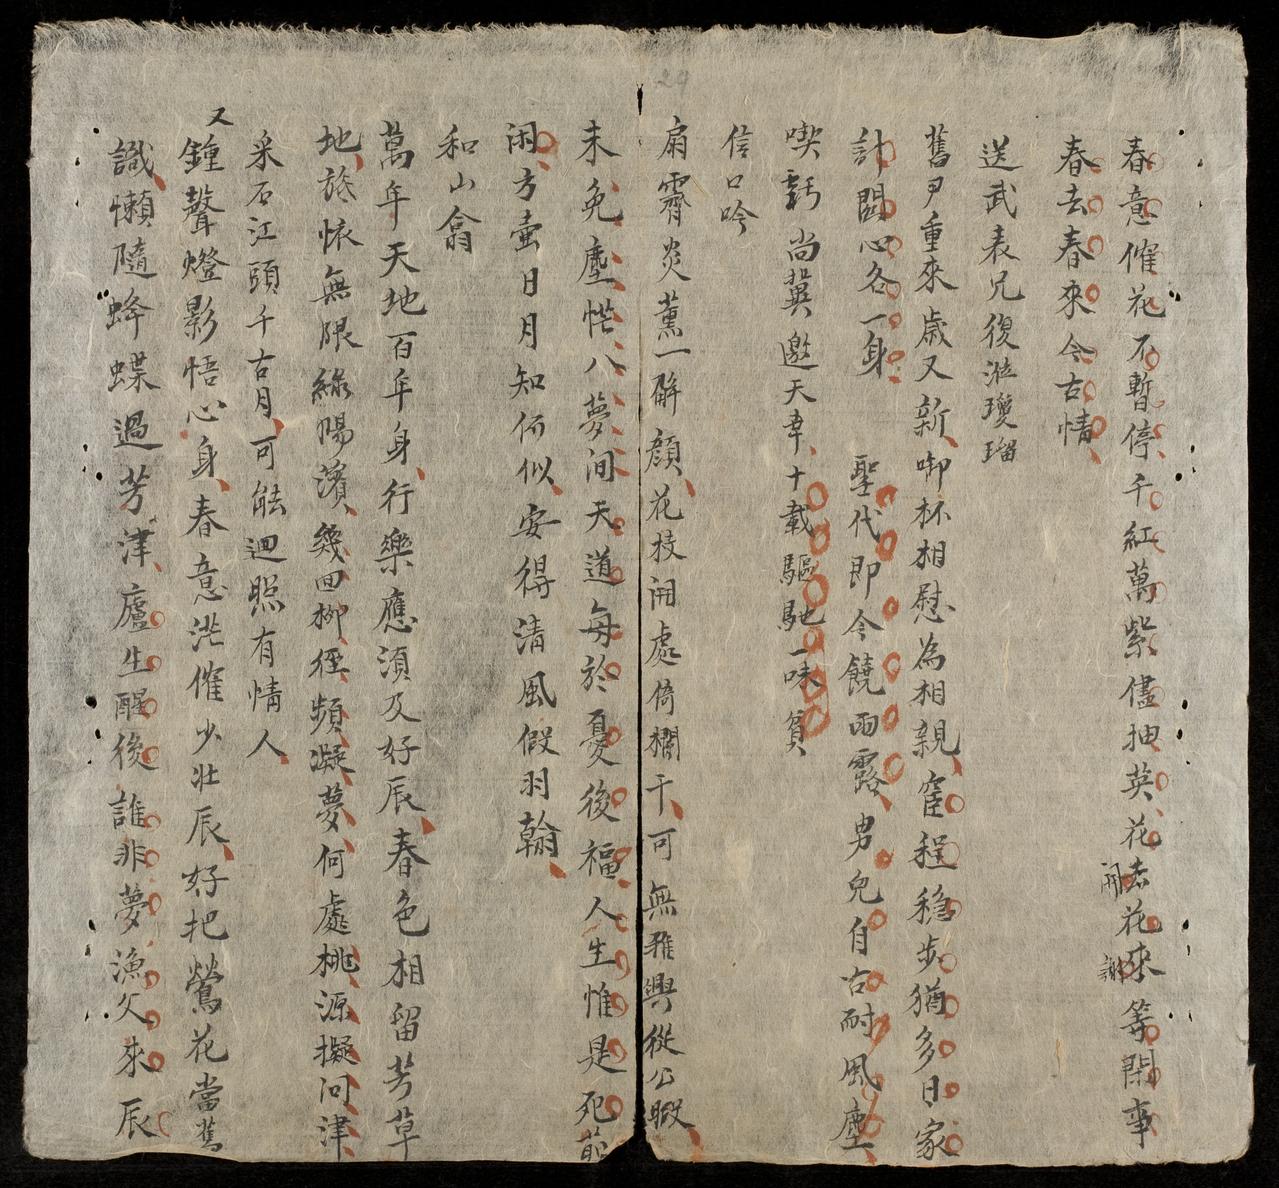 春意催花不暫停千紅萬紫儘抽英花去花來等閑事
開
謝
春去春來今古情
送武表兄復涖瓊瑠
舊尹重來歲又新啣杯相慰為相親宦程穩步猶多日家
計關心各一身 聖代即今饒雨露男兒自古耐風塵
喫虧尚冀邀天幸十載驅馳一味貧
信口吟
扇霽炎薰一解顏花枝開處倚欄干可無雅興從公暇
未免塵慌八夢间天道每於憂後福人生惟是死前
闲方壺日月知何似安得清風假羽翰
和山翁
萬年天地百年身行樂應須及好辰春色相留芳草
地旅懷無限綠陽濱幾回柳徑頻凝夢何處桃源擬问津
采石江頭千古月可能迴照有情人
又
鍾聲燈影悟心身春意泚催少壯辰好把鶯花當舊
識懶隨蜂蝶過芳津廬生醒後誰非夢漁父來辰